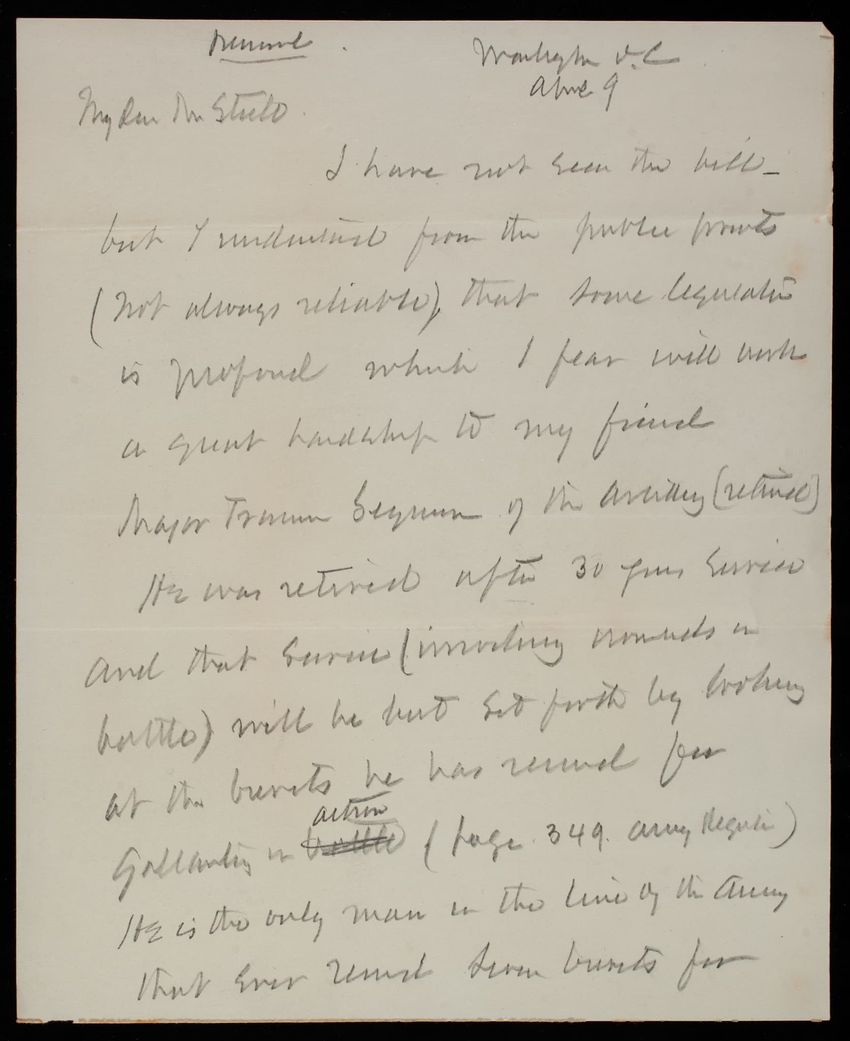 Personal
Washington D.C.
April 9
My dear Mr Steele
I have not seen the bill –
but I understand from the public prints
(not always reliable), that some legislation
is proposed which I fear will work
a great hardship to my friend
Major Truman Seymour of the Artillery (retired)
He was retired after 30 years service
and that service (involving wounds in
battle) will be best set forth by looking
at the brevets he has received for
action
Gallantry in battle (page 349. army Register)
He is the only man in the line of the Army
that ever received seven brevets for